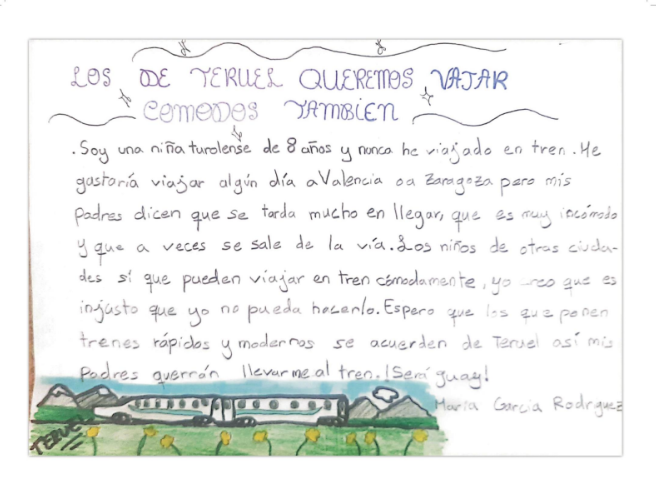 LOS DE TERUEL QUEREMOS VAJAR
COMODOS TAMBIEN
. Soy una niña turolense de 8 años y nunca he viajado en tren. Me
gustaría viajar algún día a Valencia o a Zaragoza pero mis
padres dicen que se tarda mucho en llegar, que es muy incómodo
y que a veces se sale de la vía. Los niños de otras ciuda-
des sí que pueden viajar en tren cómodamente, yo creo que es
injusto que yo no pueda hacerlo. Espero que los que ponen
trenes rápidos y modernos se acuerden de Teruel así mis
padres querrán llevarme al tren. ¡Sería guay!
María García Rodríguez
TERUEL